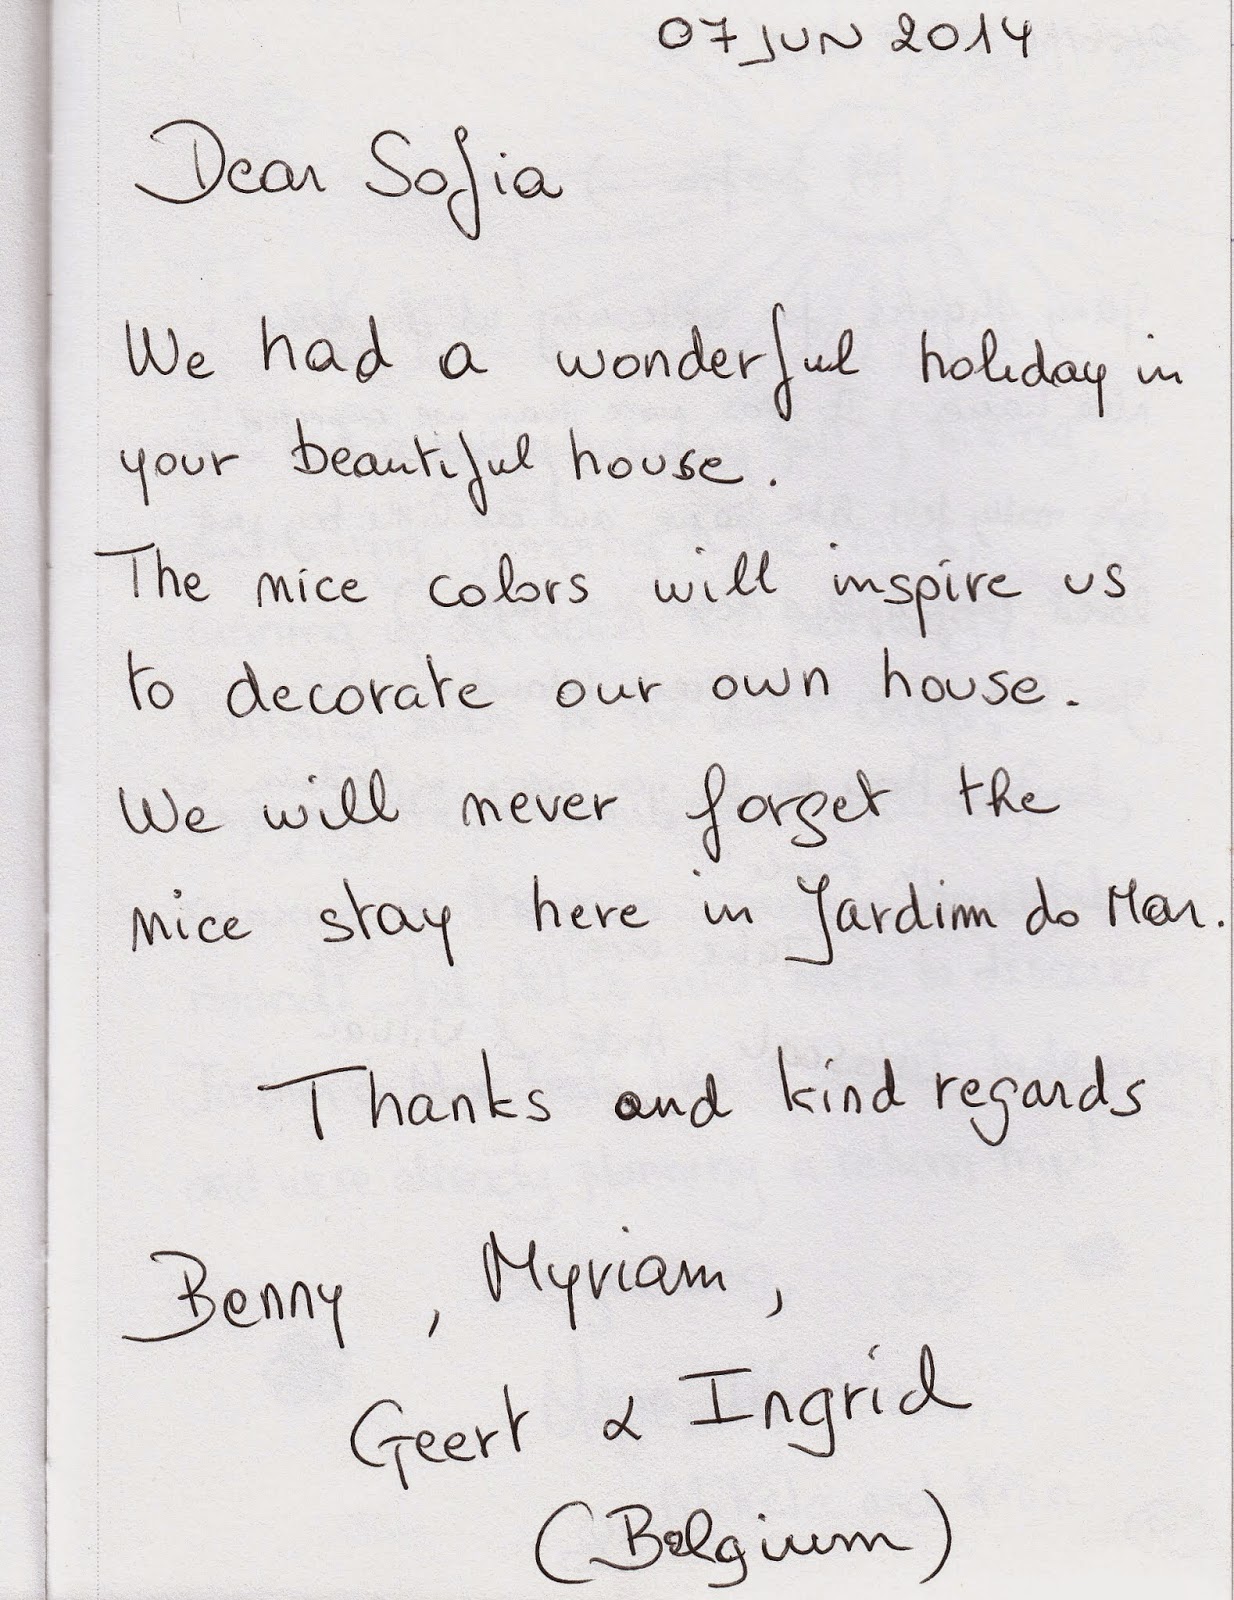 07 JUN 2014
Dear Sofia
We had a wonderful holiday in
your beautiful house.
The nice colors will inspire us
to decorate our own house.
We will never forget the
nice stay here in Jardim do Mar.
Thanks and kind regards
Benny, Myriam,
Geert & Ingrid
(Belgium)